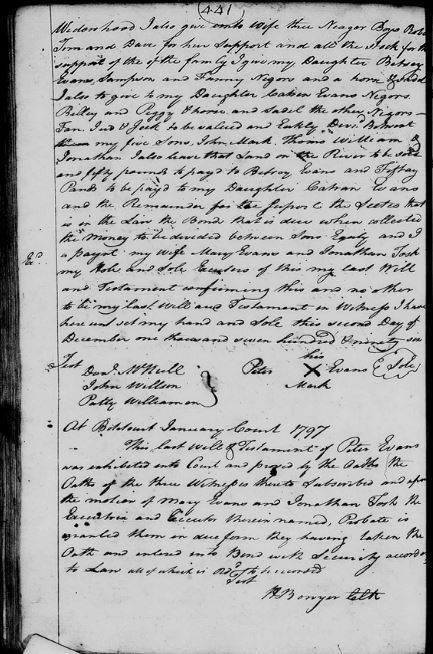 441
Widowhood I also give unto Wife three Neagor Boys Robe
Tom and Dave for her Support and all the Stock for the
support of the of the family I give my Daughter Betsey
Evans, Sampson and Fanny Negors and a horse & Saddl
I also to give to my Daughter Evans Negors
and Peggy & horse and Sadel the other Negors
& Jack to be valued and Eakly Devid. Betwat
my five Sons, John Mark Thoms William &
Jonathan I also leave that Land on the River to be sold
and fifty pounds to pay'd to Betsey Evans and Fiftay
Pands to be pay'd to my Daughter Evans
and the Remainder for the Suport the that
is in the Law the Bond that is due when collected
the Money to be divided between Sons Equly and I
my Wife Mary Evans and Jonathan Tosh
my Hole and Sole of this my last Will
and Testament confirming this and no other
to be my last Will and Testament in Witness I have
here unt set my hand and Sole this second Day of
December one thousand seven hundred & ninety six
Test
his
Dan'l McNeill
Peter X Evans Sole
John Willson
Mark
Patty Williamson
At Botetourt January Court 1797
This last Will & Testament of Peter Evans
was exhibited into Court and proved by the Oaths the
Oaths of the three Witnesses thereto Subscribed and upon
the motion of Mary Evans and Jonathan Tosh the
Executrix and Executor therein named, Probate is
granted them in due form they having taken the
Oath and entered into Bond with Security accordg
to Law all of which is Ord'd to be recorded
Test
H Bowyer Clk